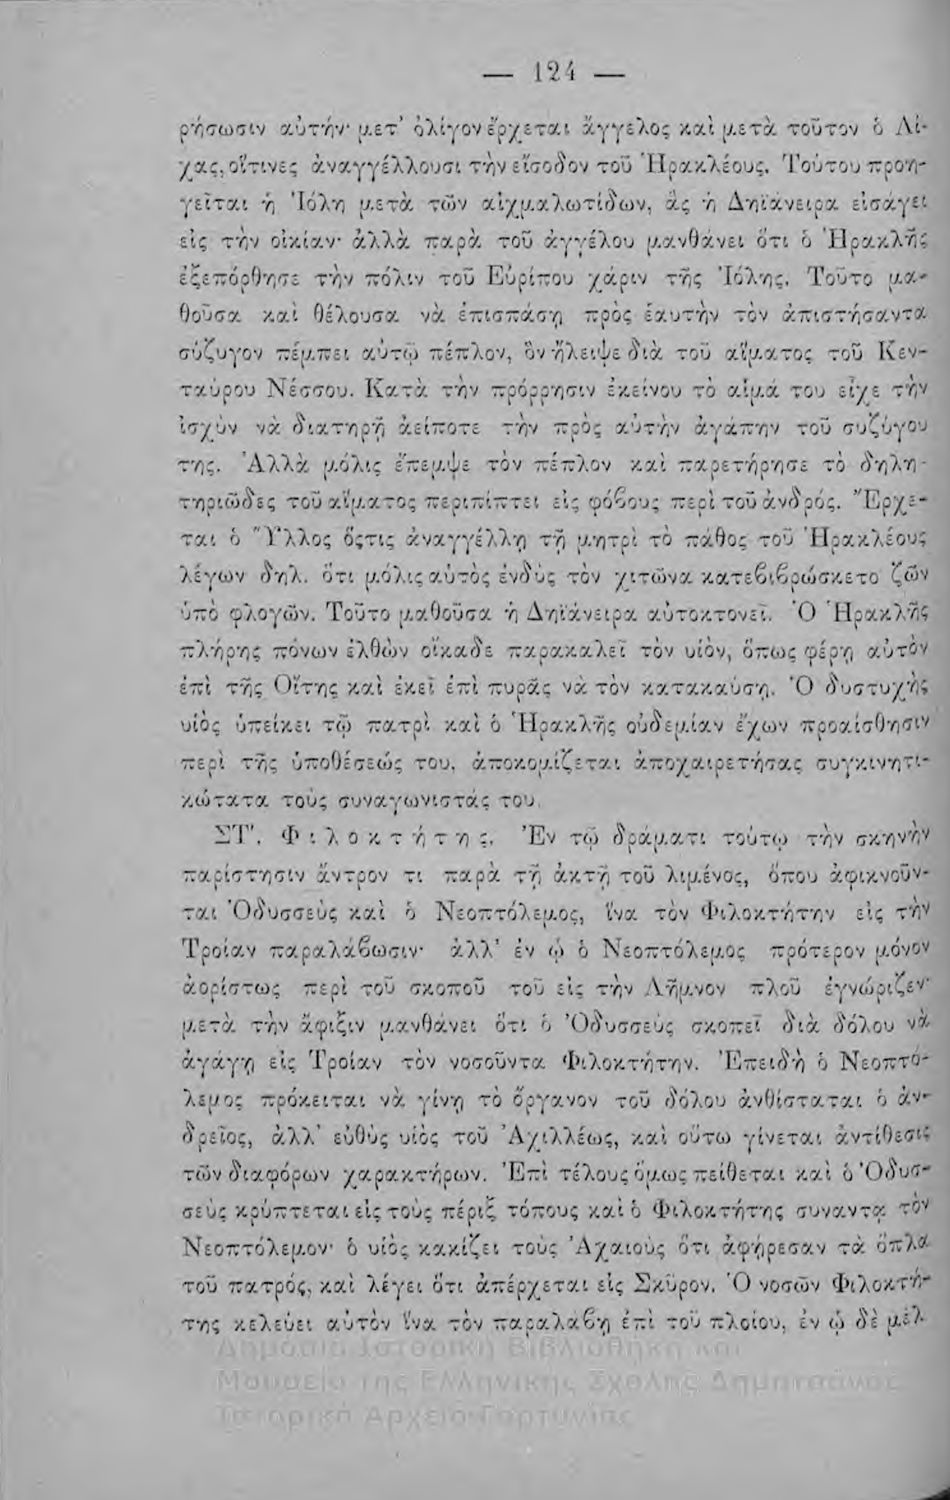 — 124 —
ρήσωσιν αὐτήν· μετ’ ὀλίγον ἔρχεται ἄγγελος καὶ μετὰ τοῦτον ὁ Λί-
χας, οἵτινες ἀναγγέλλουσι τὴν εἴσοδον τοῦ Ἡρακλέους. Τούτου προη-
γεῖται ἡ Ἰόλη μετὰ τῶν αἰχμαλωτίδων, ἃς ἡ Δηϊάνειρα εἰσάγει
εἰς τὴν οἰκίαν· ἀλλὰ παρὰ τοῦ ἀγγέλου μανθάνει ὅτι ὁ Ἡρακλῆς
ἐξεπόρθησε τὴν πόλιν τοῦ Εὐρίπου χάριν τῆς Ἰόλης. Τοῦτο μα-
θοῦσα καὶ θέλουσα νὰ ἐπισπάσῃ πρὸς ἑαυτὴν τὸν ἀπιστήσαντα
σύζυγον πέμπει αὐτῷ πέπλον, ὃν ἤλειψε διὰ τοῦ αἵματος τοῦ Κεν-
ταύρου Νέσσου. Κατὰ τὴν πρόρρησιν ἐκείνου τὸ αἷμά του εἶχε τὴν
ἰσχὺν νὰ διατηρῇ ἀείποτε τὴν πρὸς αὐτὴν ἀγάπην τοῦ συζύγου
της. Ἀλλὰ μόλις ἔπεμψε τὸν πέπλον καὶ παρετήρησε τὸ δηλη-
τηριῶδες τοῦ αἵματος περιπίπτει εἰς φόβους περὶ τοῦ ἀνδρός. Ἔρχε-
ται ὁ Ὕλλος ὅςτις ἀναγγέλλῃ τῇ μητρὶ τὸ πάθος τοῦ Ἡρακλέους
λέγων δηλ. ὅτι μόλις αὐτὸς ἐνδὺς τὸν χιτῶνα κατεβιβρώσκετο ζῶν
ὑπὸ φλογῶν. Τοῦτο μαθοῦσα ἡ Δηϊάνειρα αὐτοκτονεῖ. Ὁ Ἡρακλῆς
πλήρης πόνων ἐλθὼν οἴκαδε παρακαλεῖ τὸν υἱόν, ὅπως φέρῃ αὐτὸν
ἐπὶ τῆς Οἴτης καὶ ἐκεῖ ἐπὶ πυρᾶς νὰ τὸν κατακαύσῃ. Ὁ δυστυχὴς
υἱὸς ὑπείκει τῷ πατρὶ καὶ ὁ Ἡρακλῆς οὐδεμίαν ἔχων προαίσθησιν
περὶ τῆς ὑποθέσεώς του, ἀποκομίζεται ἀποχαιρετήσας συγκινητι-
κώτατα τοὺς συναγωνιστάς του.
ΣΤ’. Φιλοκτήτης. Ἐν τῷ δράματι τούτῳ τὴν σκηνὴν
παρίστησιν ἄντρον τι παρὰ τῇ ἀκτῇ τοῦ λιμένος, ὅπου ἀφικνοῦν-
ται Ὀδυσσεὺς καὶ ὁ Νεοπτόλεμος, ἵνα τὸν Φιλοκτήτην εἰς τὴν
Τροίαν παραλάβωσιν· ἀλλ’ ἐν ᾧ ὁ Νεοπτόλεμος πρότερον μόνον
ἀορίστως περὶ τοῦ σκοποῦ τοῦ εἰς τὴν Λῆμνον πλοῦ ἐγνώριζεν·
μετὰ τὴν ἄφιξιν μανθάνει ὅτι ὁ Ὀδυσσεὺς σκοπεῖ διὰ δόλου νὰ
ἀγάγῃ εἰς Τροίαν τὸν νοσοῦντα Φιλοκτήτην. Ἐπειδὴ ὁ Νεοπτό-
λεμος πρόκειται νὰ γίνῃ τὸ ὄργανον τοῦ δόλου ἀνθίσταται ὁ ἀν-
δρεῖος, ἀλλ’ εὐθὺς υἱὸς τοῦ Ἀχιλλέως, καὶ οὕτω γίνεται ἀντίθεσις
τῶν διαφόρων χαρακτήρων. Ἐπὶ τέλους ὅμως πείθεται καὶ ὁ Ὀδυσ-
σεὺς κρύπτεται εἰς τοὺς πέριξ τόπους καὶ ὁ Φιλοκτήτης συναντᾷ τὸν
Νεοπτόλεμον· ὁ υἱὸς κακίζει τοὺς Ἀχαιοὺς ὅτι ἀφῄρεσαν τὰ ὅπλα
τοῦ πατρός, καὶ λέγει ὅτι ἀπέρχεται εἰς Σκῦρον. Ὁ νοσῶν Φιλοκτή-
της κελεύει αὐτὸν ἵνα τὸν παραλάβῃ ἐπὶ τοῦ πλοίου, ἐν ᾧ δὲ μέλ-
Δημόσια Ιστορική Βιβλιοθήκη και
Μουσείο της Ελληνικής Σχολής Δημητσάνας
Ιστορικό Αρχείο Γορτυνίας